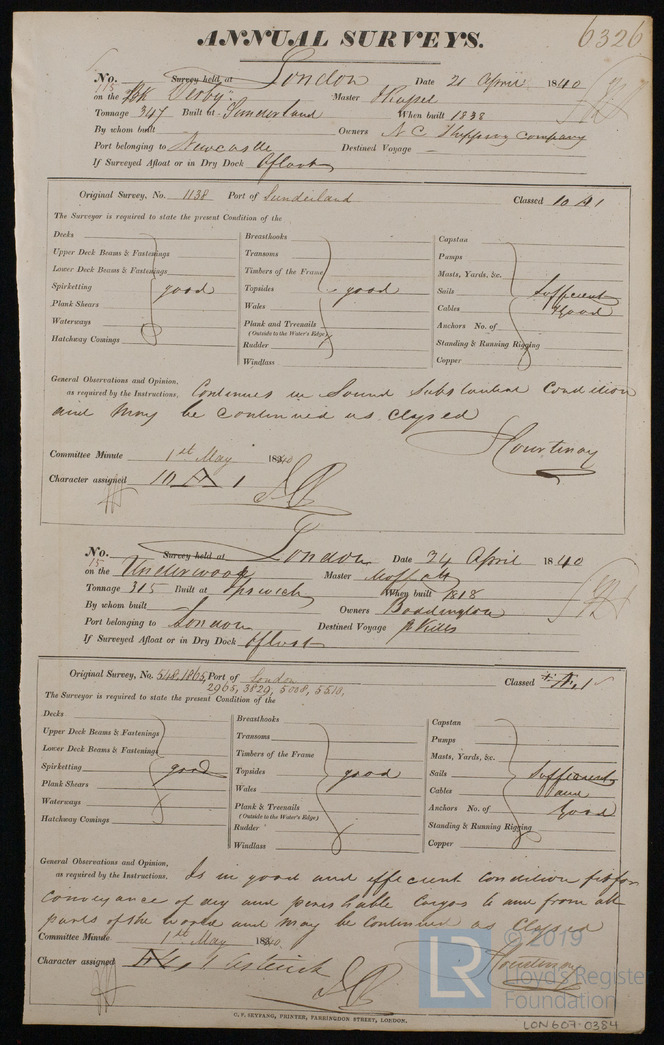 6326
ANNUAL SURVEYS.
No. 115 Survey held at London Date 21 April 1840
on the Derby Master
Tonnage 347 Built at Sunderland When built 1838
By whom built Owners N C Shipping Company
Port belonging to Newcastle Destined Voyage
If Surveyed Afloat or in Dry Dock Afloat
Original Survey, No. 1138 Port of Sunderland Classed 10 A 1
The Surveyor is required to state the present Condition of the
Decks Breasthooks Capstan
Upper Deck Beams & Fastenings Transoms Pumps
Lower Deck Beams & Fastenings Timbers of the Frame Masts, Yards, &c.
Spirketting good Topsides good Sails Sufficient
Plank Shears Wales Cables Good
Waterways Plank and Treenails Anchors No. of
(Outside to the Water's Edge)
Hatchway Comings Rudder Standing & Running Rigging
Windlass Copper
General Observations and Opinion,
as required by the Instructions. Continues in Sound Substantial Condition
and may be continued as classed
Courtenay
Committee Minute 1st May 1840
Character assigned 10 A 1
No. 15 Survey held at London Date 24 April 1840
on the Underwood Master Moffatt
Tonnage 315 Built at Ipswich When built 1818
By whom built Owners Boddington
Port belonging to London Destined Voyage St Kitts
If Surveyed Afloat or in Dry Dock Afloat
Original Survey, No. 548, 1865, Port of London Classed Æ 1
2965, 3829, 5008, 5510,
The Surveyor is required to state the present Condition of the
Decks Breasthooks Capstan
Upper Deck Beams & Fastenings Transoms Pumps
Lower Deck Beams & Fastenings Timbers of the Frame Masts, Yards, &c.
Spirketting good Topsides good Sails Sufficient
Plank Shears Wales Cables and
Waterways Plank & Treenails Anchors No. of Good
(Outside to the Water's Edge)
Hatchway Comings Rudder Standing & Running Rigging
Windlass Copper
General Observations and Opinion,
as required by the Instructions. Is in good and efficient condition fit for
conveyance of dry and perishable Cargos to and from all
parts of the world and may be continued as classed
Committee Minute 1st May 1840
Courtenay
Character assigned Æ 1 Asterisk
C. F. SEYFANG, PRINTER, FARRINGDON STREET, LONDON.
LR © 2019
Lloyd's Register
Foundation
LON607-0384